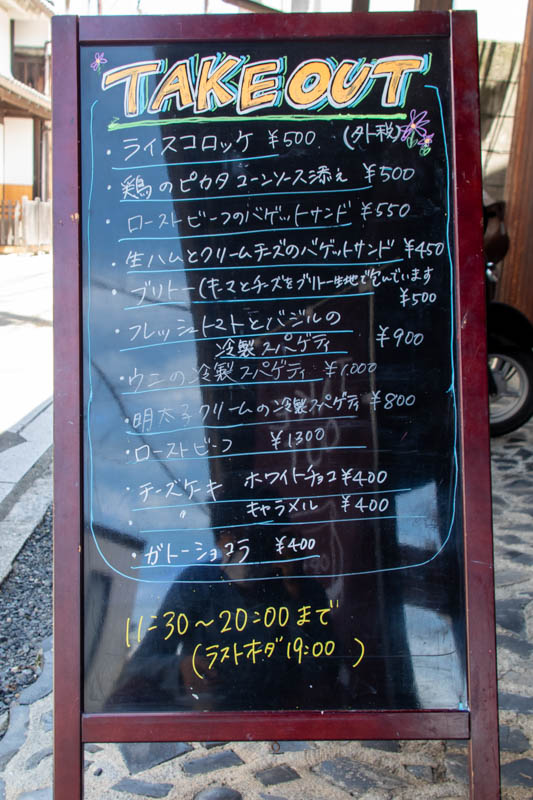 TAKE OUT
・ライスコロッケ ¥500 (外税)
・鶏のピカタ コーンソース添え ¥500
・ローストビーフのバゲットサンド ¥550
・生ハムとクリームチーズのバゲットサンド ¥450
・ブリトー(キーマとチーズをブリトー生地で包んでいます
¥500
・フレッシュトマトとバジルの
冷製スパゲティ ¥900
・ウニの冷製スパゲティ ¥1,000
・明太子クリームの冷製スパゲティ ¥800
・ローストビーフ ¥1300
・チーズケーキ ホワイトチョコ ¥400
〃 キャラメル ¥400
・ガトーショコラ ¥400
11:30〜20:00まで
(ラストオーダ19:00 )